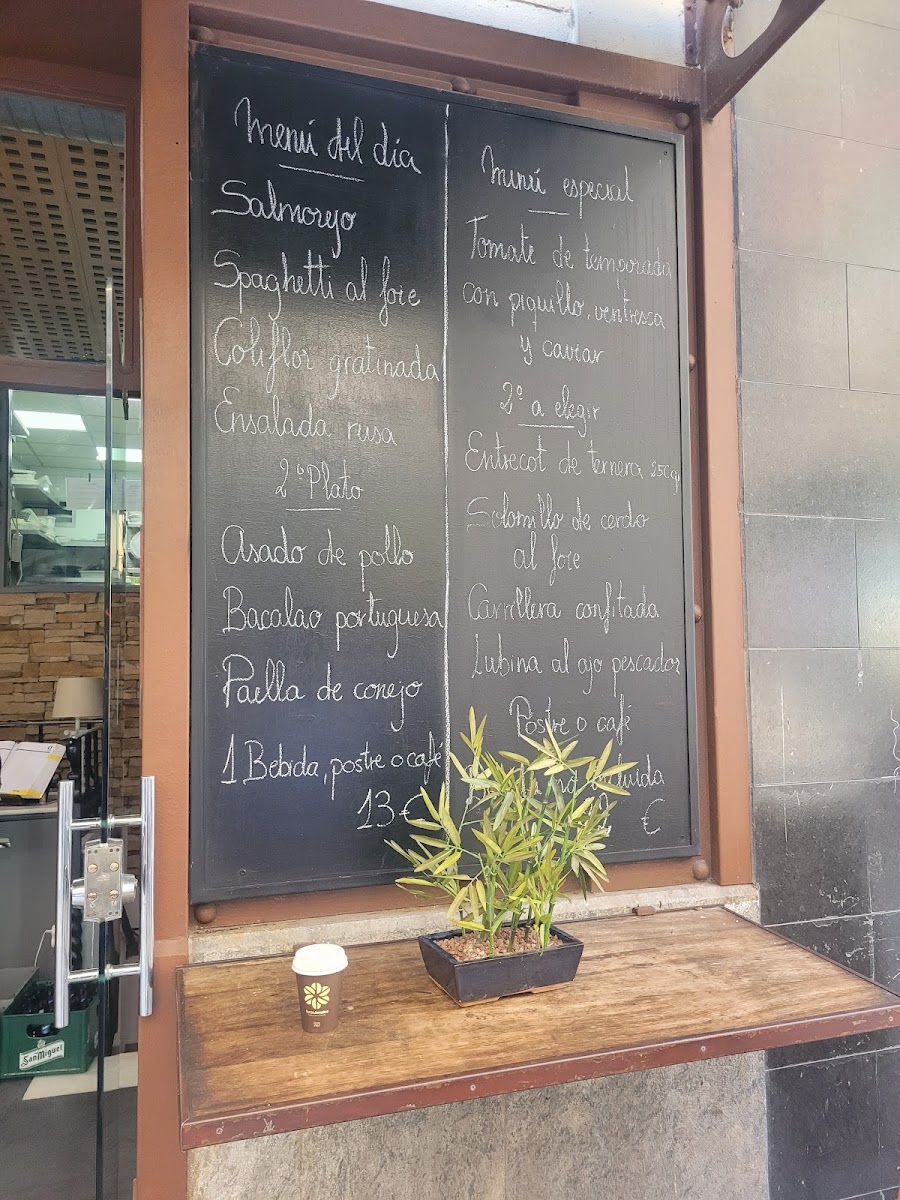 Menú del día
Salmorejo
Spaghetti al foie
Coliflor gratinada
Ensalada rusa
2º Plato
Asado de pollo
Bacalao portuguesa
Paella de conejo
1 Bebida, postre o café
13€
Menú especial
Tomate de temporada
con piquillo, ventresca
y caviar
2º a elegir
Entrecot de ternera 250g
Solomillo de cerdo
al foie
Carrillera confitada
Lubina al ajo pescador
Postre o café
€
San Miguel